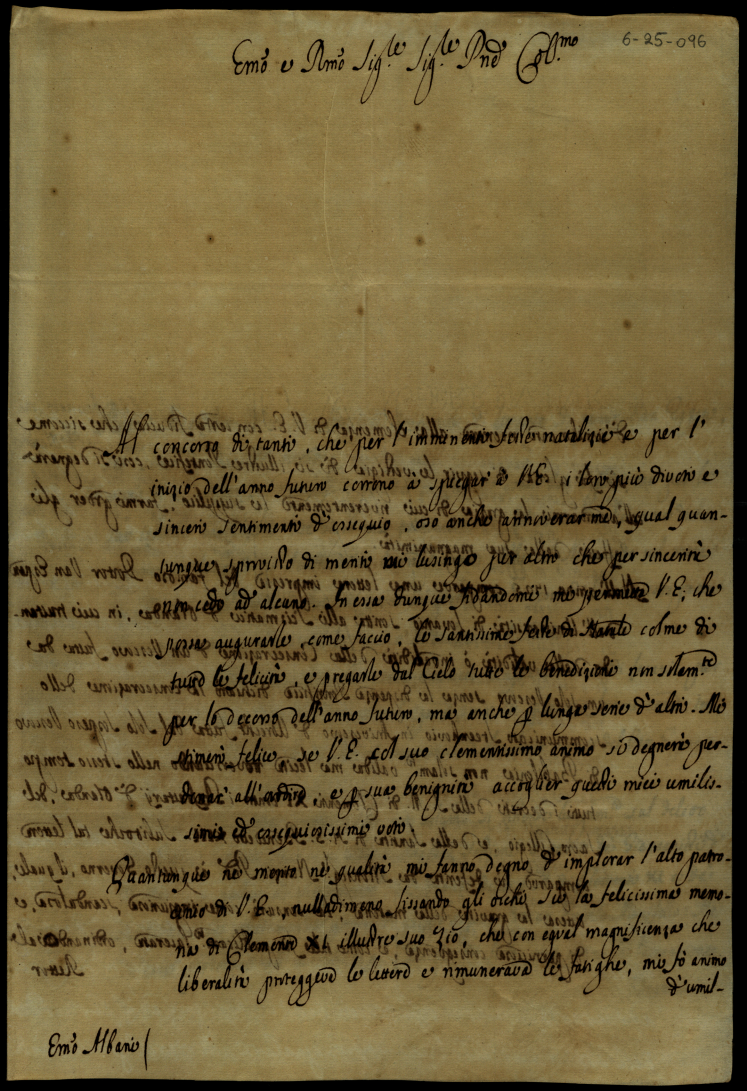 6-25-096
Emõ e Rmõ Sig.le Sig.le Pnẽ Col.mo
Al concorso di tanti, che per l'imminenti feste natalizie e per l'
inizio dell'anno futuro corrono a spiegar à V.E. i loro più divoti e
sinceri sentimenti d'ossequio, oso anche annoverarmi, qual quan-
tunque sprovisto di meriti mi lusingo pur altro che per sincerità
non cedo ad alcuno. In essa dunque fidandomi mi permetta V.E., che
possa augurarle, come faccio, le santissime feste di Natale colme di
tutte le felicità, e pregarle dal Cielo tutte le benedizioni non solam.te
per lo decorso dell'anno futuro, ma anche p lunga serie d'altri. Mi
stimerò felice se V.E. col suo clementissimo animo si degnerà per-
donar' all'ardire e p sua benignità accoglier questi miei umilis-
simi ed ossequiosissimi voti.
Quantunque nè merito nè qualità mi fanno degno d'implorar l'alto patro-
cinio di V.E. nulladimeno fissando gli occhi su la felicissima memo-
ria di Clemente XI illustre suo Zio, che con egual magnificenza che
liberalità proteggeva le lettere e rimunerava le fatighe, mi fò animo
d'umil-
Emõ Albani